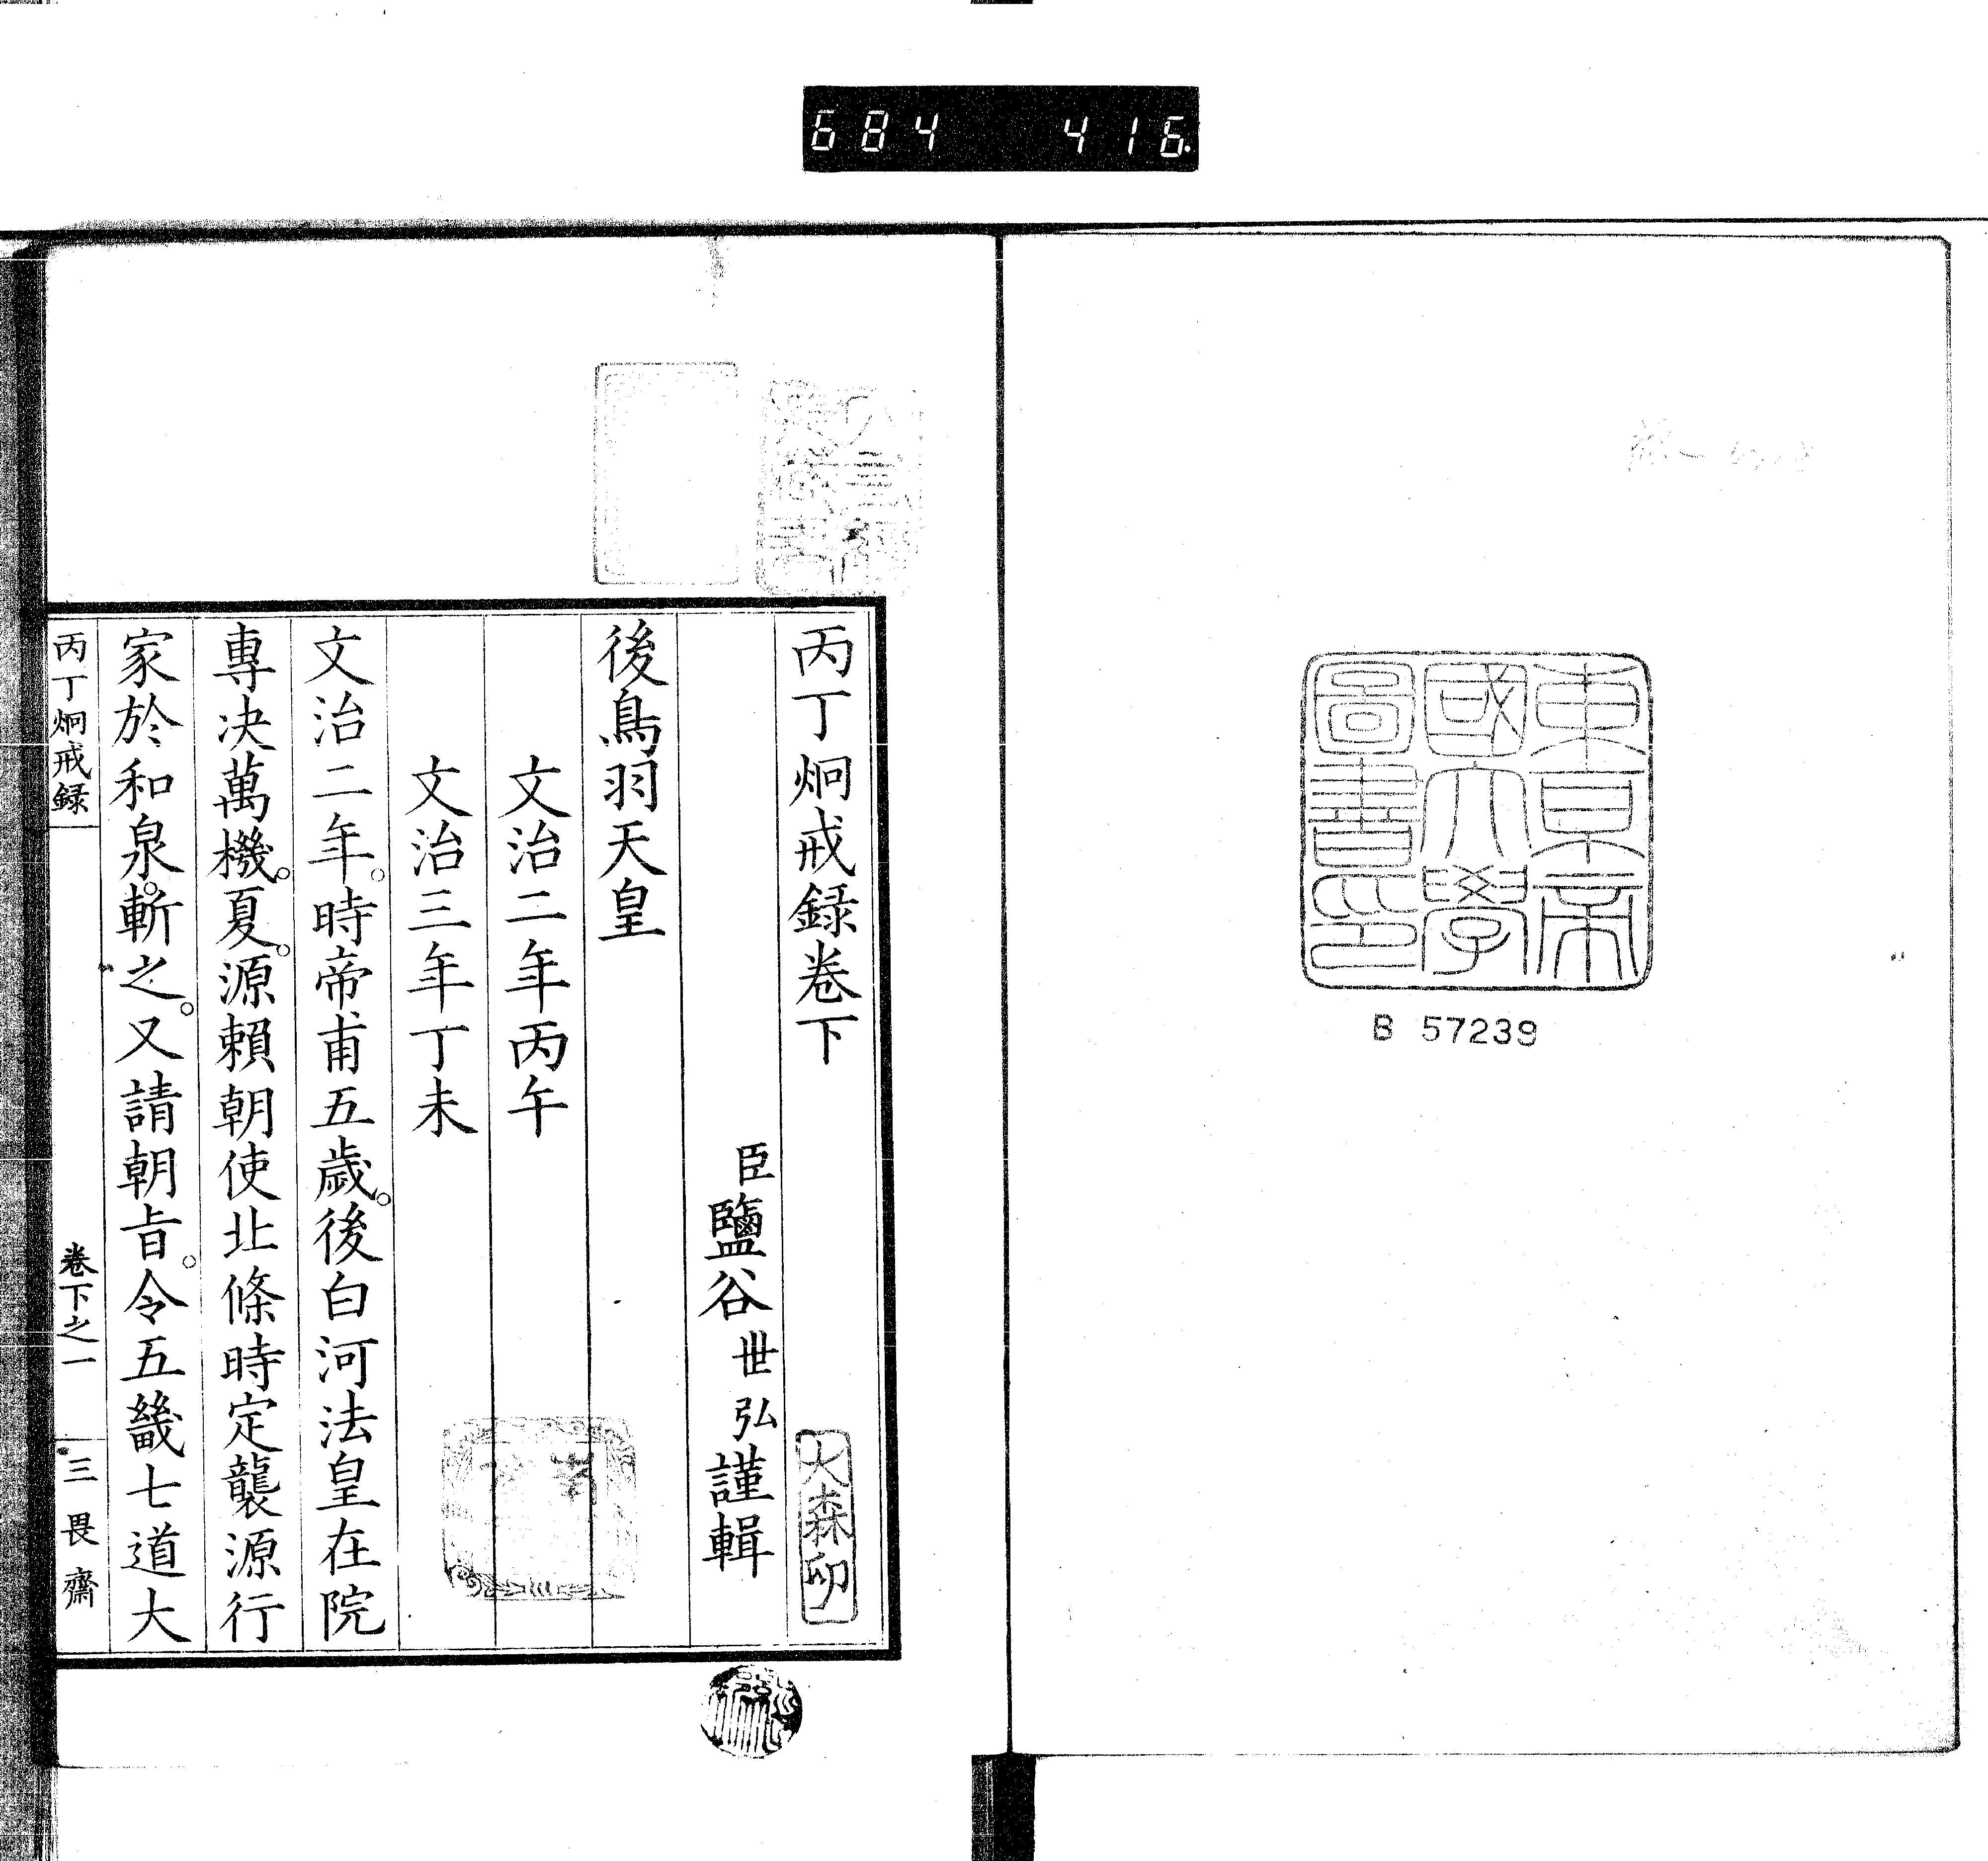 684 416.
東京帝
國大學
圖書印
B 57239
丙丁炯戒録卷下
大森印
臣鹽谷世弘謹輯
後鳥羽天皇
文治二年丙午
文治三年丁未
文治二年。時帝甫五歲。後白河法皇在院
專决萬機。夏。源賴朝使北條時定襲源行
家於和泉。斬之。又請朝旨。令五畿七道大
丙丁炯戒録 卷下之一 三畏齋